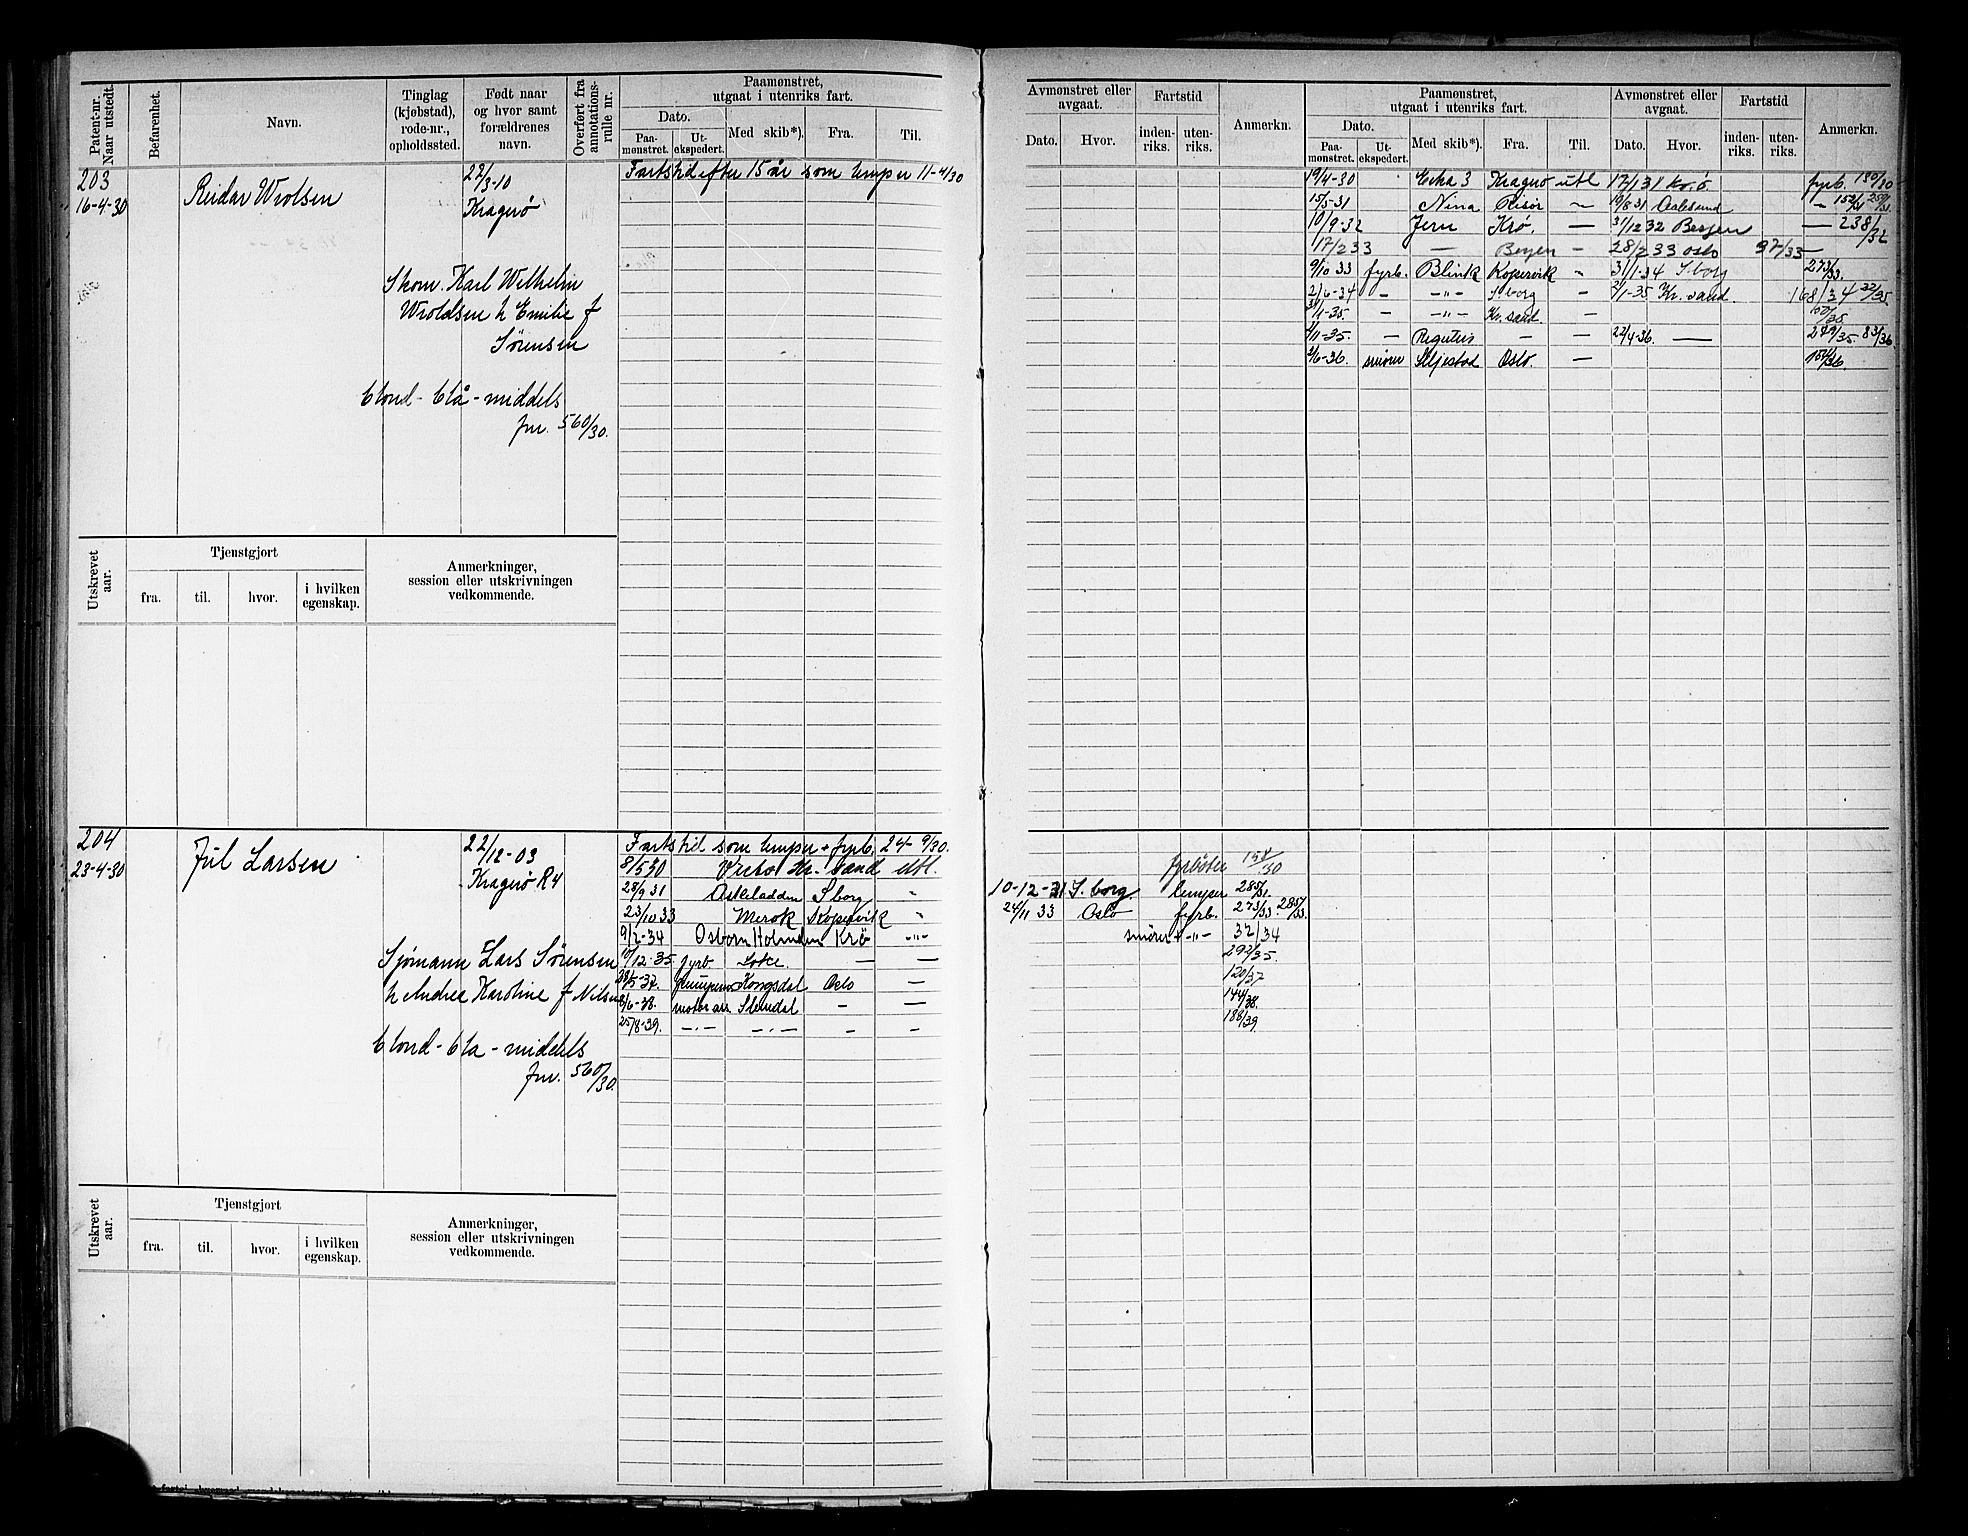 Patent-nr. Naar utstedt. Befarenhet. Navn. Tinglag (kjøbstad), rode-nr., opholdssted. Født naar og hvor samt forældrenes navn. Overført fra annotations-rulle nr. Paamønstret, utgaat i utenriks fart. Dato. Paa-mønstret. Ut-ekspedert. Med skib*). Fra. Til.
203
16-4-30
Reidar Wrolsen
22/3-10
Kragerø
Skom. Karl Wilhelm
Wroldsen h Emilie f
Sørensen
blond - blå - middels
Jnr. 560/30.
Fartstid efter 15 år som lemper 11-4/30
Utskrevet aar. Tjenstgjort fra. til. hvor. i hvilken egenskap. Anmerkninger, session eller utskrivningen vedkommende.
204
23-4-30
Jul Larsen
22/12-03
Kragerø R4
Sjømann Lars Sørensen
h Andrea Karoline f Nilsen
blond - bla - middels
Jnr. 560/30.
Fartstid som lemper + fyrb. 24- 9/30.
8/5 30 Kr. sand utl.
28/9 31 Oskeladden S borg "
23/10 33 Merok Kopervik "
9/2-34 Osborn Holmden Krö -"-
10/12-35. fyrb Loke. — —
28/5-37. Kongsdal Oslo —
8/6-38. motor ass Steindal - —
25/8-39. -.- -.- - -
Utskrevet aar. Tjenstgjort fra. til. hvor. i hvilken egenskap. Anmerkninger, session eller utskrivningen vedkommende.
Avmønstret eller avgaat. Dato. Hvor. Fartstid inden-riks. uten-riks. Anmerkn. Paamønstret, utgaat i utenriks fart. Dato. Paa-mønstret. Ut-ekspedert. Med skib*). Fra. Til. Avmønstret eller avgaat. Dato. Hvor. Fartstid inden-riks. uten-riks. Anmerkn.
19/4-30 Kragerø utl 17/1 31 Kr.ö fyrb. 130/30
15/5-31 Nina Risør ~ 19/8 31 Aalesund - 152/31 259/31.
10/9-32 Jern Krø. - 31/12 32 Bergen — 238/32
17/2 33 — Bergen - 28/2 33 Oslo 97/33 —
9/10 33 fyrb. Blink Kopervik - 31/1-34 S.borg 273/33.
2/6-34 - -"- S borg - 2/1-35 Kr. sand 168/34 32/35.
31/1-35. - -"- Kr. sand. — 100/35
2/11-35. - Regulus — — 22/4-36. — 279/35. 83/36
2/6-36. smörer Oslo. — 152/36.
fyrböter 154/30
10-12-31 S. borg. lemper 285/31.
24/11 33 Oslo fyrb. 273/33. 285/33.
smörer + -"- 32/34
292/35.
120/37
144/38.
188/39.